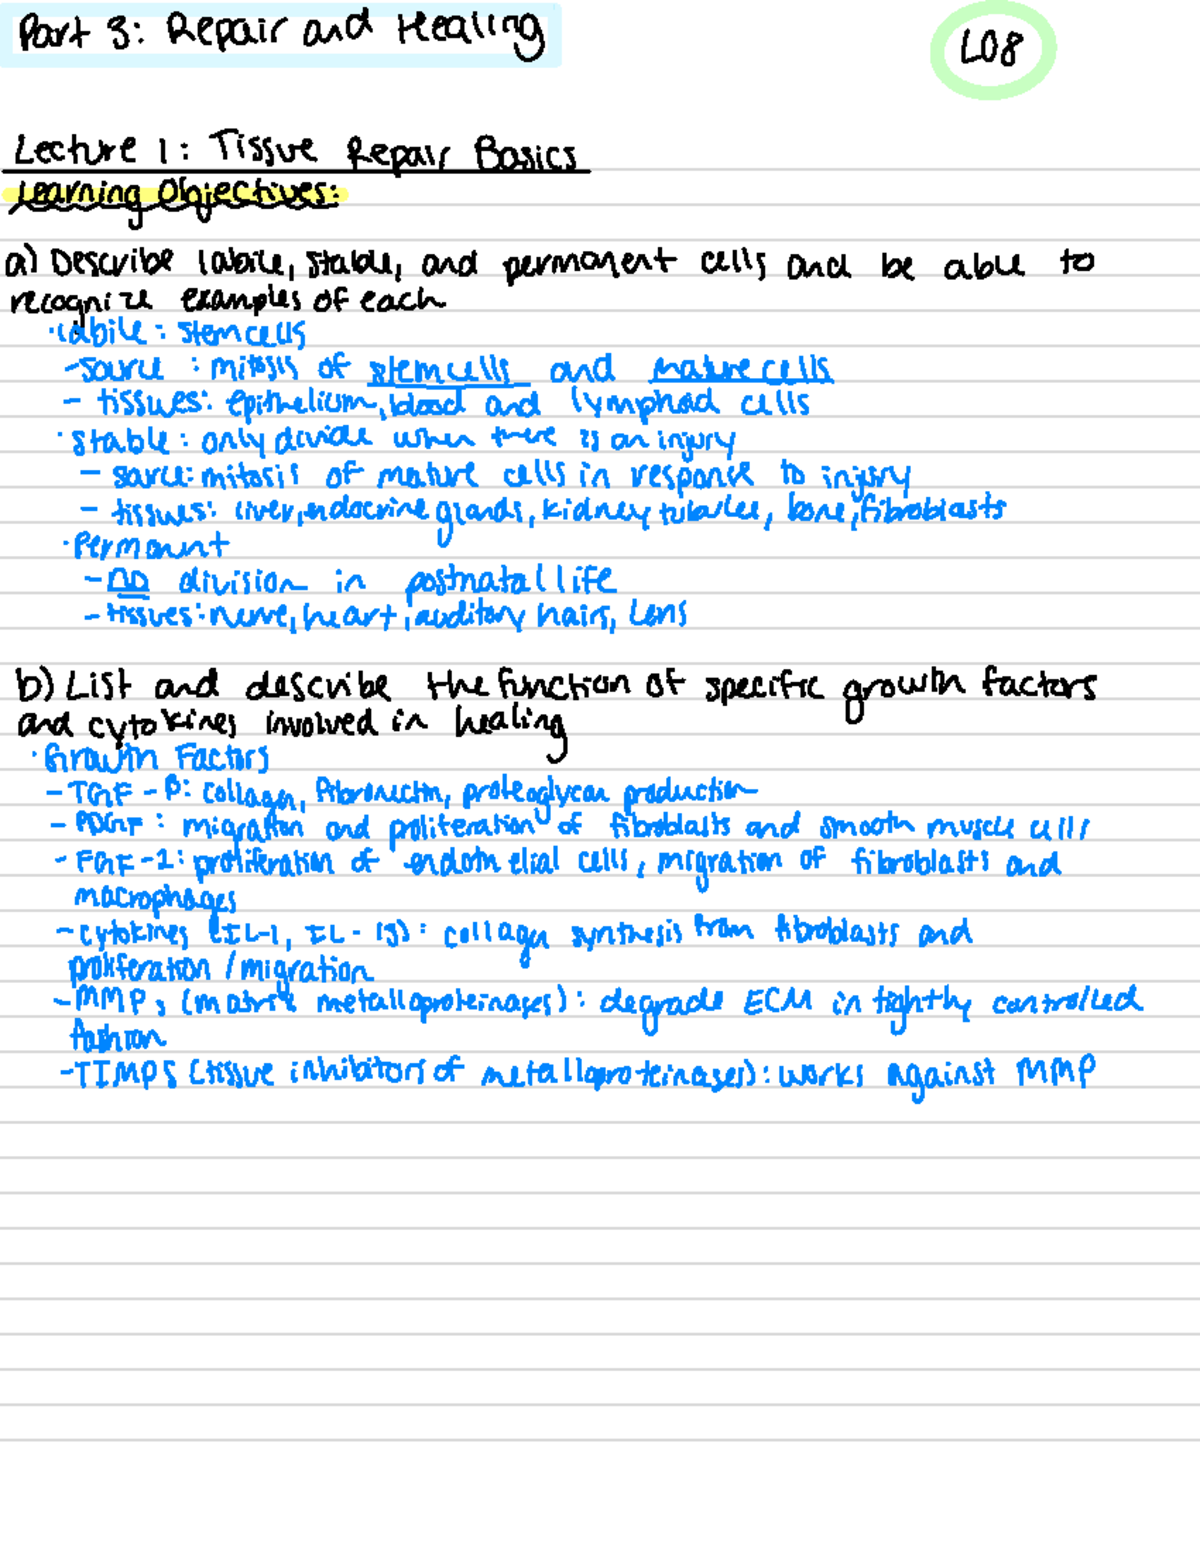 Part 3: Repair and Healing
L08
Lecture 1: Tissue Repair Basics
Learning Objectives:
a) Describe labile, stable, and permanent cells and be able to
recognize examples of each
·Labile: stem cells
-source: mitosis of stem cells and mature cells
- tissues: epithelium, blood and lymphoid cells
·Stable: only divide when there is an injury
- source: mitosis of mature cells in response to injury
- tissues: liver, endocrine glands, kidney tubules, bone, fibroblasts
·Permanent
- no division in postnatal life
- tissues: nerve, heart, auditory hairs, lens
b) List and describe the function of specific growth factors
and cytokines involved in healing
·Growth Factors
- TGF-β: collagen, fibronectin, proteoglycan production
- PDGF: migration and proliferation of fibroblasts and smooth muscle cells
- FGF-2: proliferation of endothelial cells, migration of fibroblasts and
macrophages
- cytokines (IL-1, IL-13): collagen synthesis from fibroblasts and
proliferation/migration
- MMPs (matrix metalloproteinases): degrade ECM in tightly controlled
fashion
- TIMPS (tissue inhibitors of metalloproteinases): works against MMP